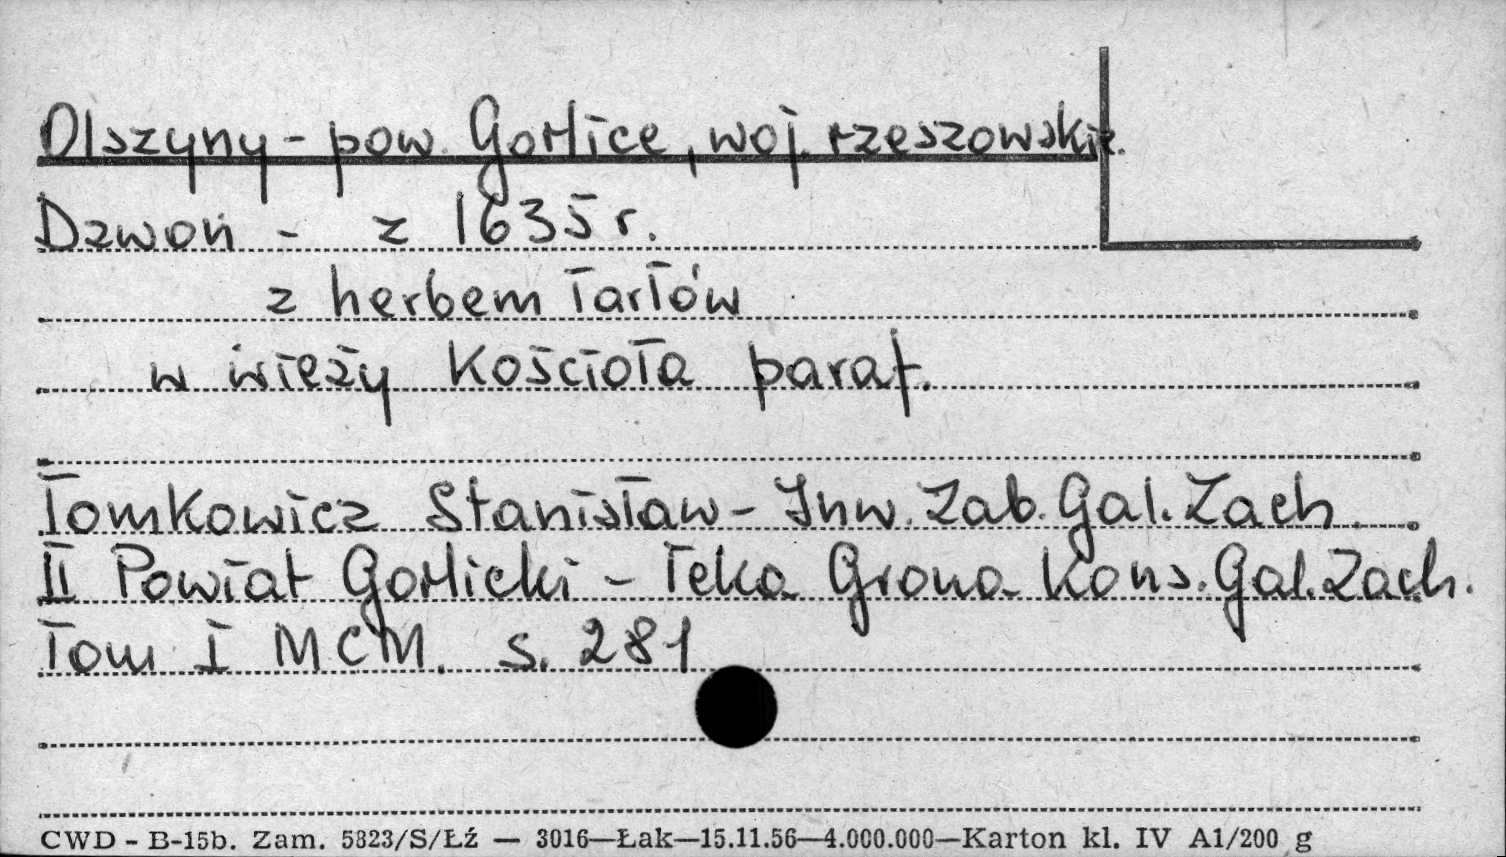 Olszyny - pow. Gorlice, woj. rzeszowskie.
Dzwon - z 1635 r.
z herbem Tarłów
w wieży Kościoła paraf.
Tomkowicz Stanisław - Inw. Zab. Gal. Zach.
II Powiat Gorlicki - Teka Grona Kons. Gal. Zach.
Tom I MCM. s. 281
CWD - B-15b. Zam. 5823/S/Łź — 3016—Łak—15.11.56—4.000.000—Karton kl. IV A1/200 g